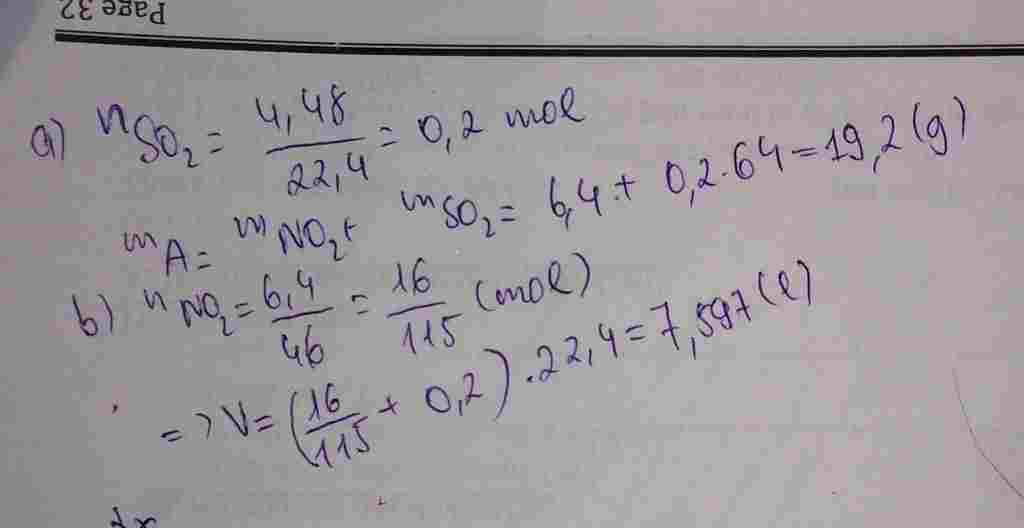 Page 32
a) nSO₂ = 4,48/22,4 = 0,2 mol
mA = mNO₂ + mSO₂ = 6,4 + 0,2.64 = 19,2 (g)
b) nNO₂ = 6,4/46 = 16/115 (mol)
=> V = (16/115 + 0,2).22,4 = 7,597 (l)